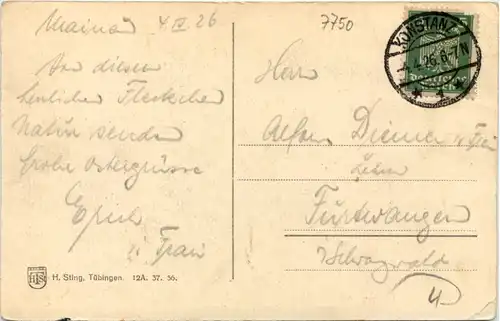 Mainau 4 IV 26
Von diesem
herrlichen Fleckchen
Natur senden
frohe Ostergrüsse
Erich
u. Frau
H. Sting, Tübingen. 12A. 37. 56.
7750
KONSTANZ
26. 6-7 N
Deutsches Reich
Herrn
Alfons Diemer u. Frau
Furtwangen
Schwarzwald
4